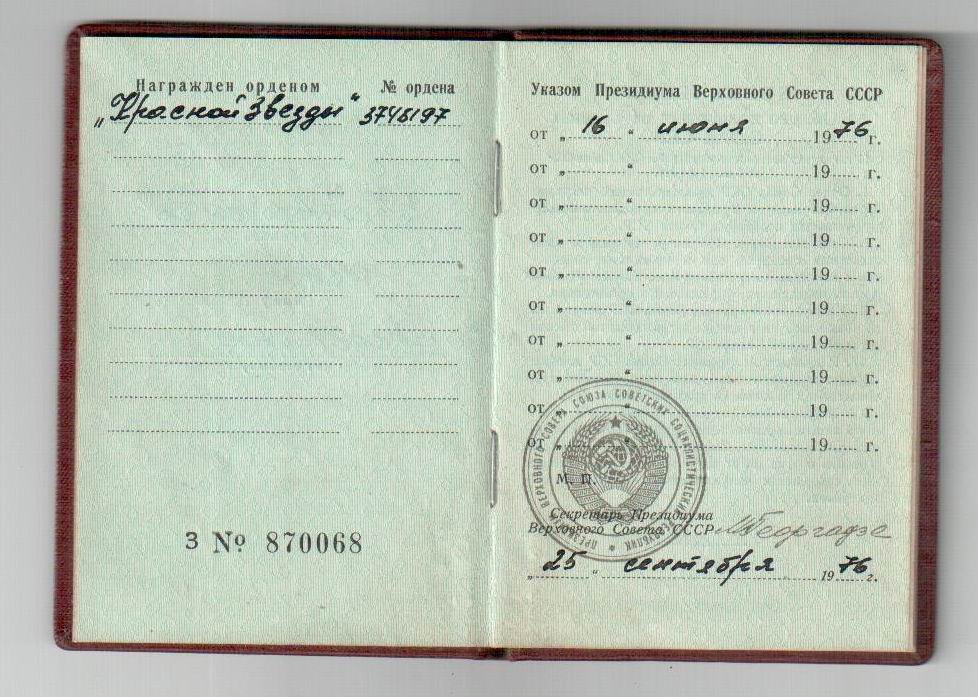 Награжден орденом
№ ордена
„Красной Звезды“ 3746197
З № 870068
Указом Президиума Верховного Совета СССР
от „ 16 “ июня 1976 г.
от „ “ 19 г.
от „ “ 19 г.
от „ “ 19 г.
от „ “ 19 г.
от „ “ 19 г.
от „ “ 19 г.
от „ “ 19 г.
от „ “ 19 г.
от „ “ 19 г.
ВЕРХОВНОГО СОВЕТА СОЮЗА СОВЕТСКИХ СОЦИАЛИСТИЧЕСКИХ РЕСПУБЛИК
М. П.
Секретарь Президиума
Верховного Совета СССР МГеоргадзе
„ 25 “ сентября 1976 г.